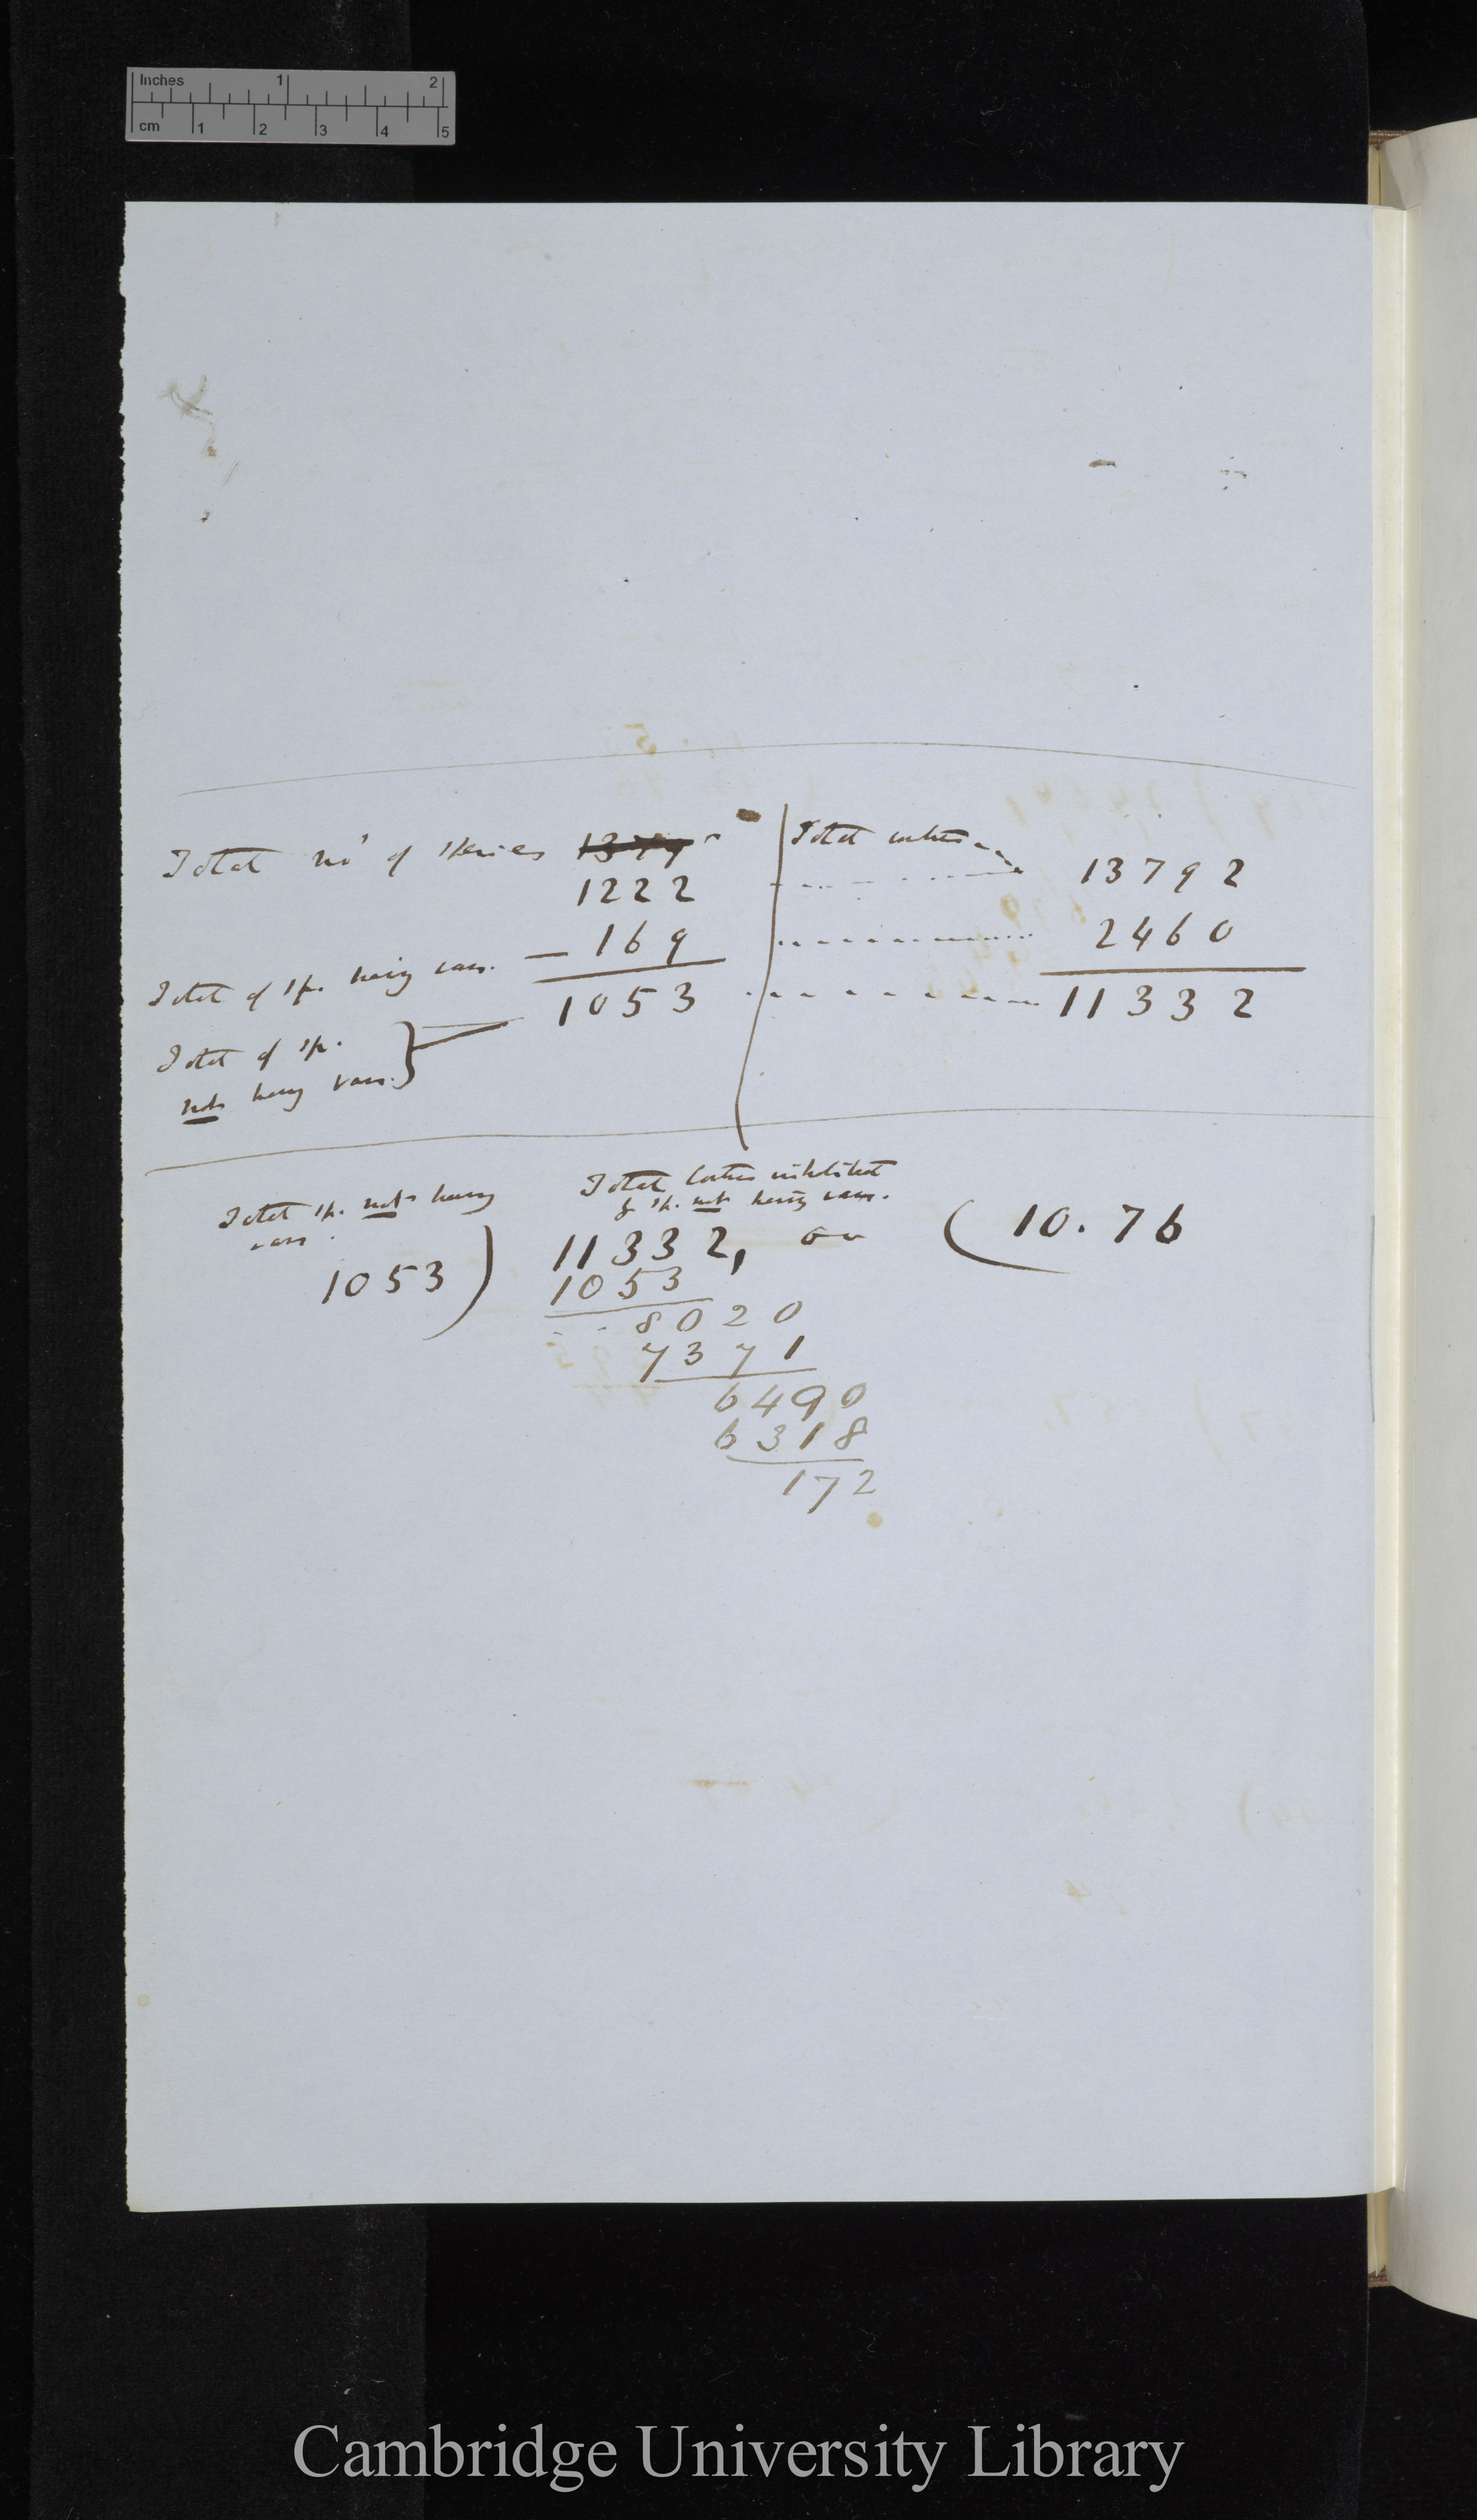 Inches 1 2
cm 1 2 3 4 5
Total no of species 1379
1222
Total of sp. having vars. — 169
1053
Total of sp.
not having vars.
Total
13792
2460
11332
Total sp. not having
vars.
1053 ) 11332, 00 ( 10.76
Total inhabited
by sp. not having vars.
1053
8020
7371
6490
6318
172
Cambridge University Library